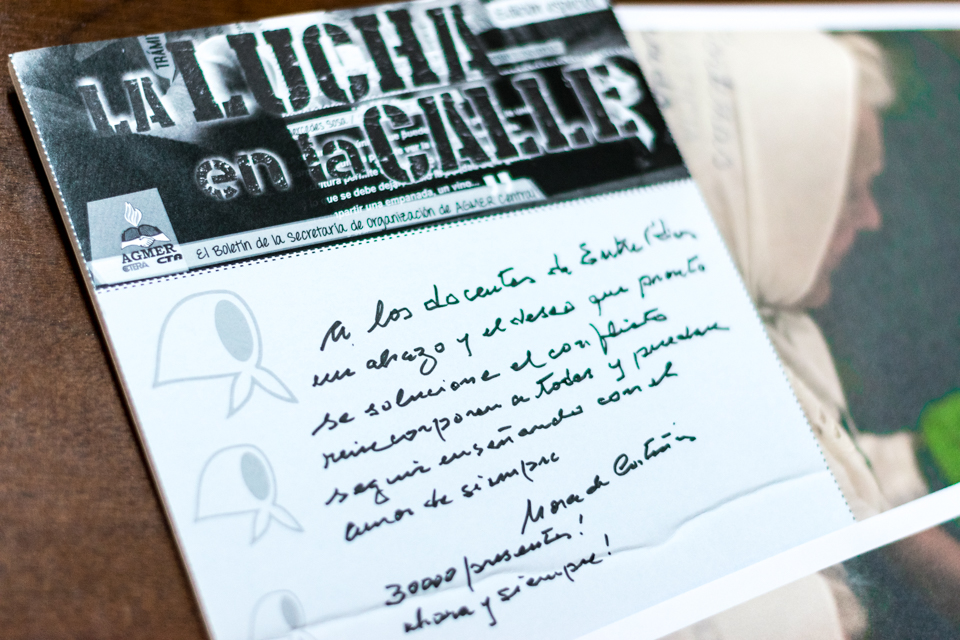 TRÁMI
LA LUCHA
en la CALLE
Mercedes Sosa /
que se debe deja
partir una empanada, un vino...
AGMER
CTERA CTA
El Boletín de la Secretaría de Organización de AGMER Central
A los docentes de Entre Ríos
un abrazo y el deseo que pronto
se solucione el conflicto
reincorporen a todas y puedan
seguir enseñando con el
amor de siempre
Nora de Cortiñas
30000 presentes!
ahora y siempre!